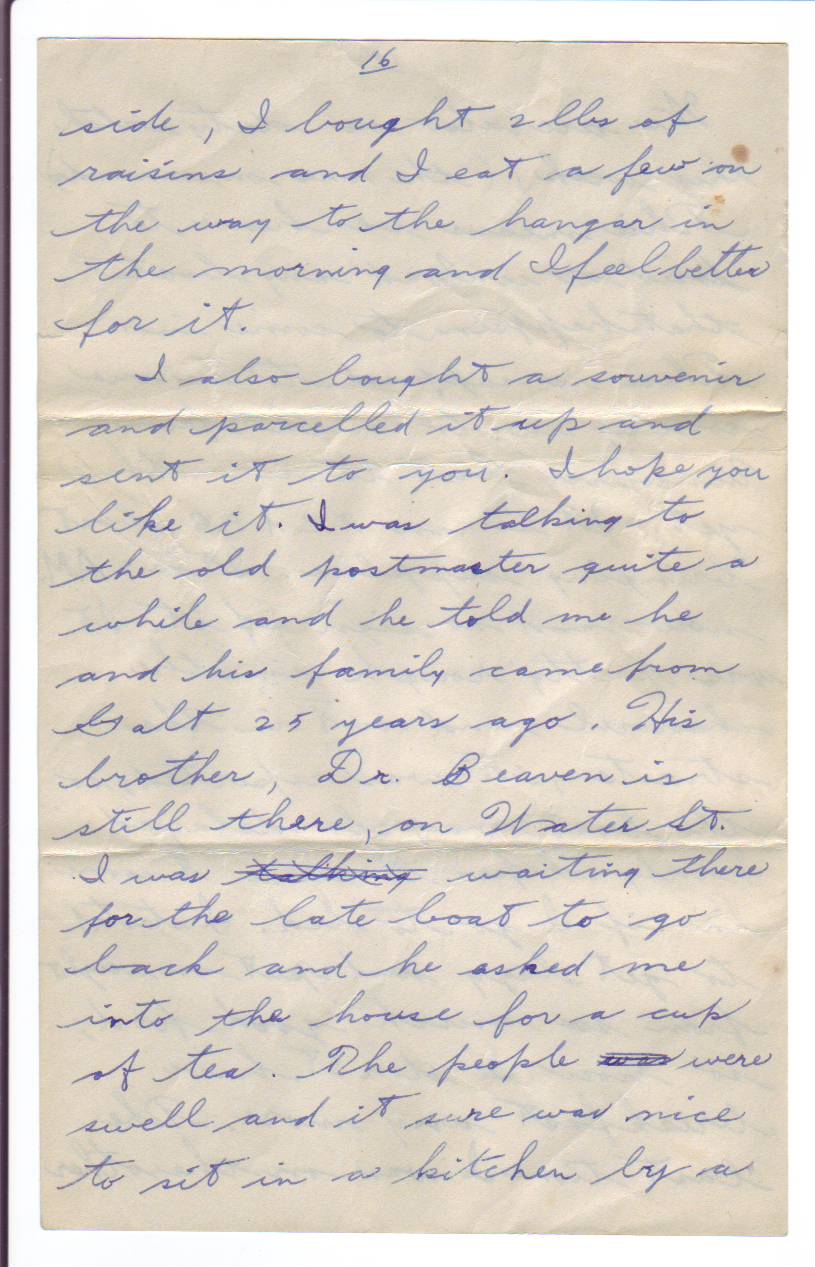 16
side, I bought 2 lbs of
raisins and I eat a few on
the way to the hangar in
the morning and I feel better
for it.
I also bought a souvenir
and parcelled it up and
sent it to you. I hope you
like it. I was talking to
the old postmaster quite a
while and he told me he
and his family came from
Galt 25 years ago. His
brother, Dr. Beaven is
still there, on Water St.
I was talking waiting there
for the late boat to go
back and he asked me
into the house for a cup
of tea. The people was were
swell and it sure was nice
to sit in a kitchen by a